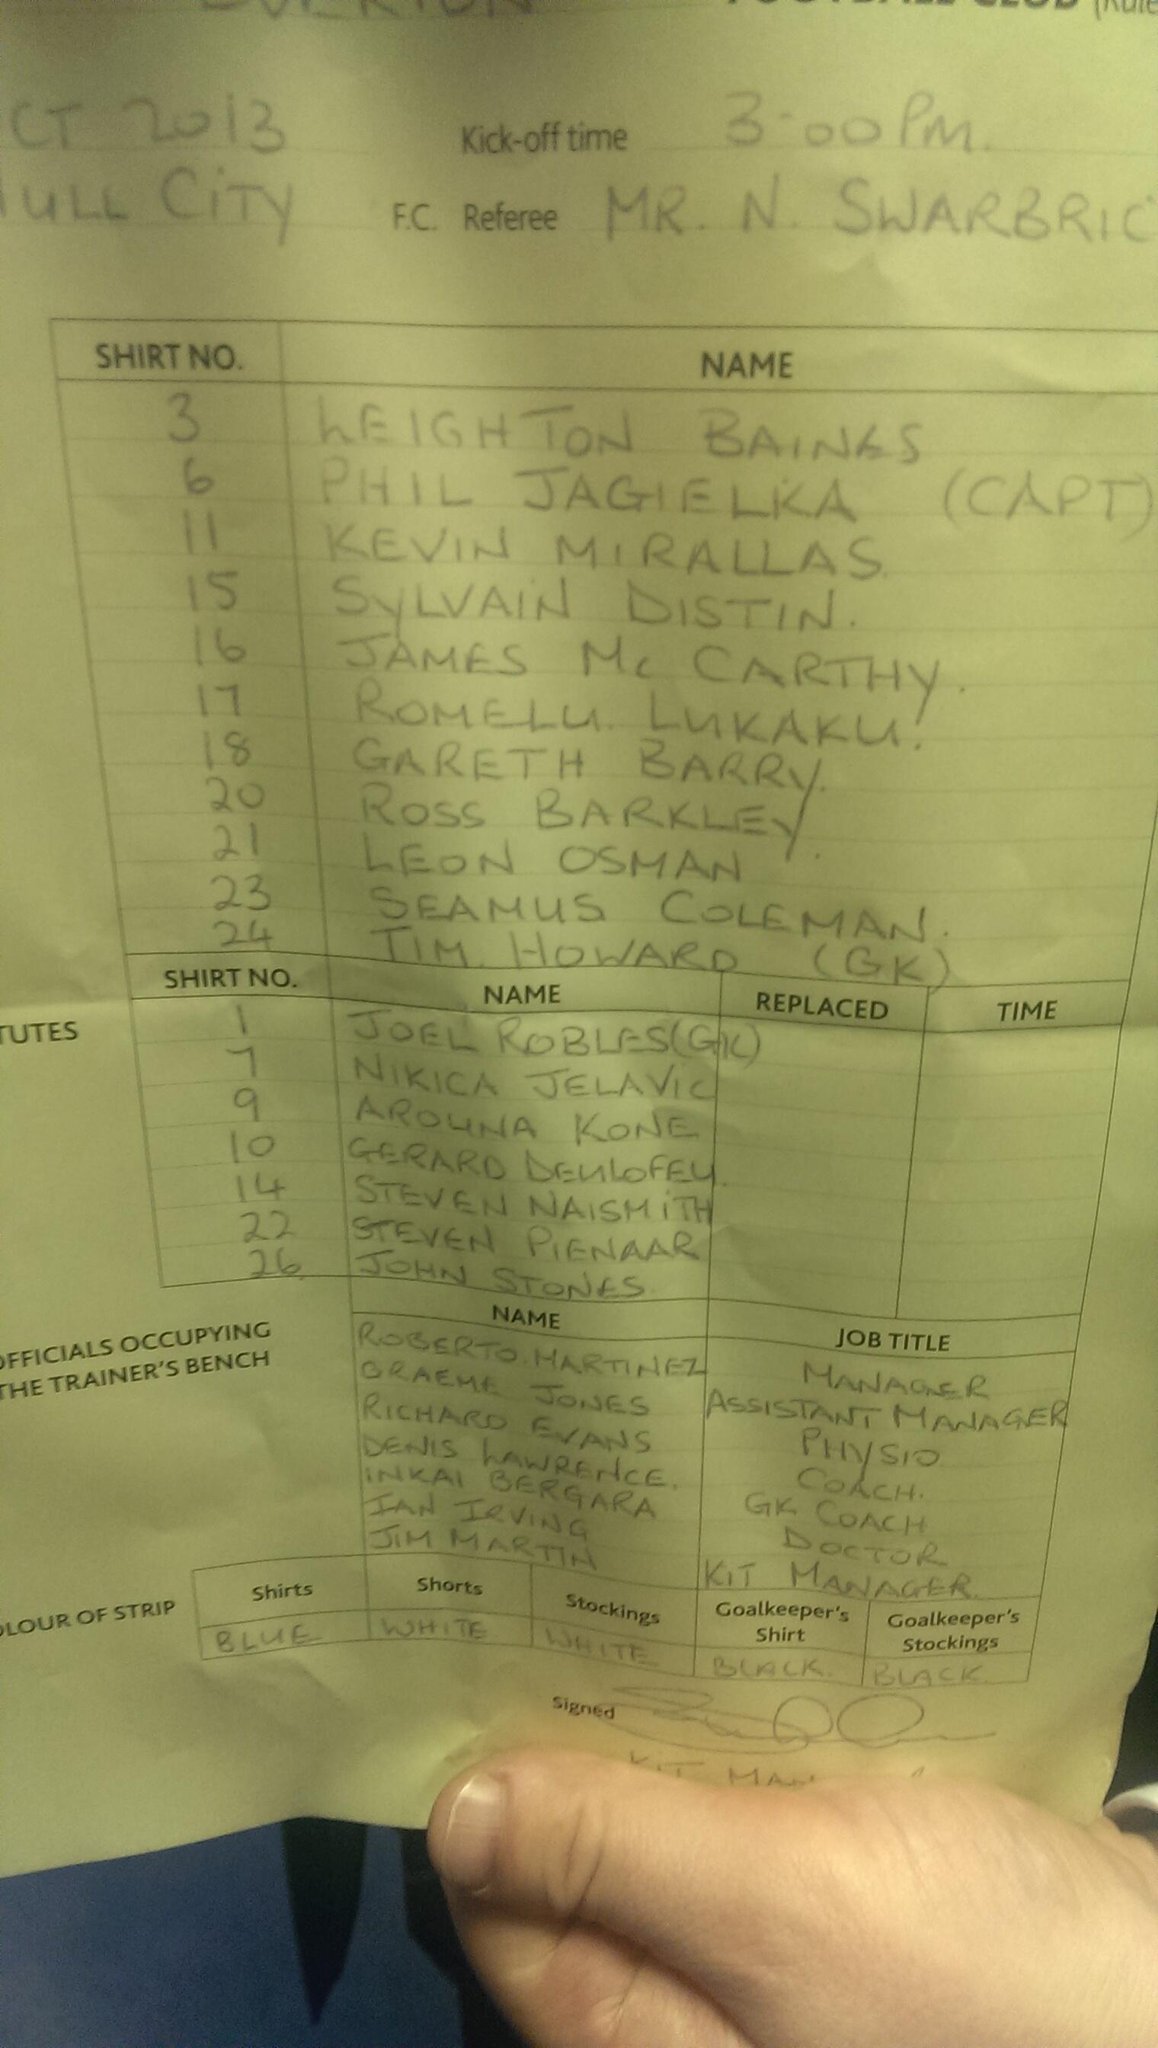 EVERTON FOOTBALL CLUB (Rule
CT 2013 Kick-off time 3:00 PM.
HULL CITY F.C. Referee MR. N. SWARBRIC
SHIRT NO. NAME
3 LEIGHTON BAINES
6 PHIL JAGIELKA (CAPT)
11 KEVIN MIRALLAS.
15 SYLVAIN DISTIN.
16 JAMES Mc CARTHY.
17 ROMELU LUKAKU.
18 GARETH BARRY.
20 ROSS BARKLEY.
21 LEON OSMAN
23 SEAMUS COLEMAN.
24 TIM HOWARD (GK)
SHIRT NO. NAME REPLACED TIME
TUTES
1 JOEL ROBLES (GK)
7 NIKICA JELAVIC
9 AROUNA KONE
10 GERARD DEULOFEU.
14 STEVEN NAISMITH
22 STEVEN PIENAAR
26 JOHN STONES
NAME JOB TITLE
OFFICIALS OCCUPYING
THE TRAINER'S BENCH
ROBERTO MARTINEZ MANAGER
GRAEME JONES ASSISTANT MANAGER
RICHARD EVANS PHYSIO
DENIS LAWRENCE. COACH.
INKAI BERGARA GK COACH
IAN IRVING DOCTOR
JIM MARTIN KIT MANAGER.
OLOUR OF STRIP
Shirts Shorts Stockings Goalkeeper's Shirt Goalkeeper's Stockings
BLUE WHITE WHITE BLACK. BLACK.
Signed
KIT MAN